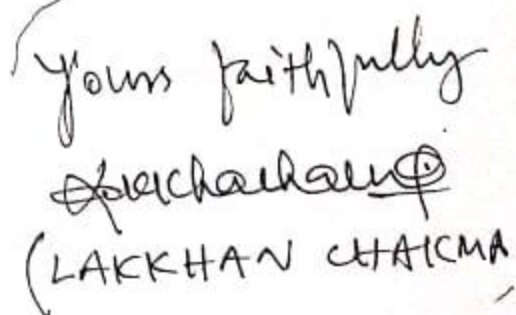 Yours faithfully
(LAKKHAN CHAKMA